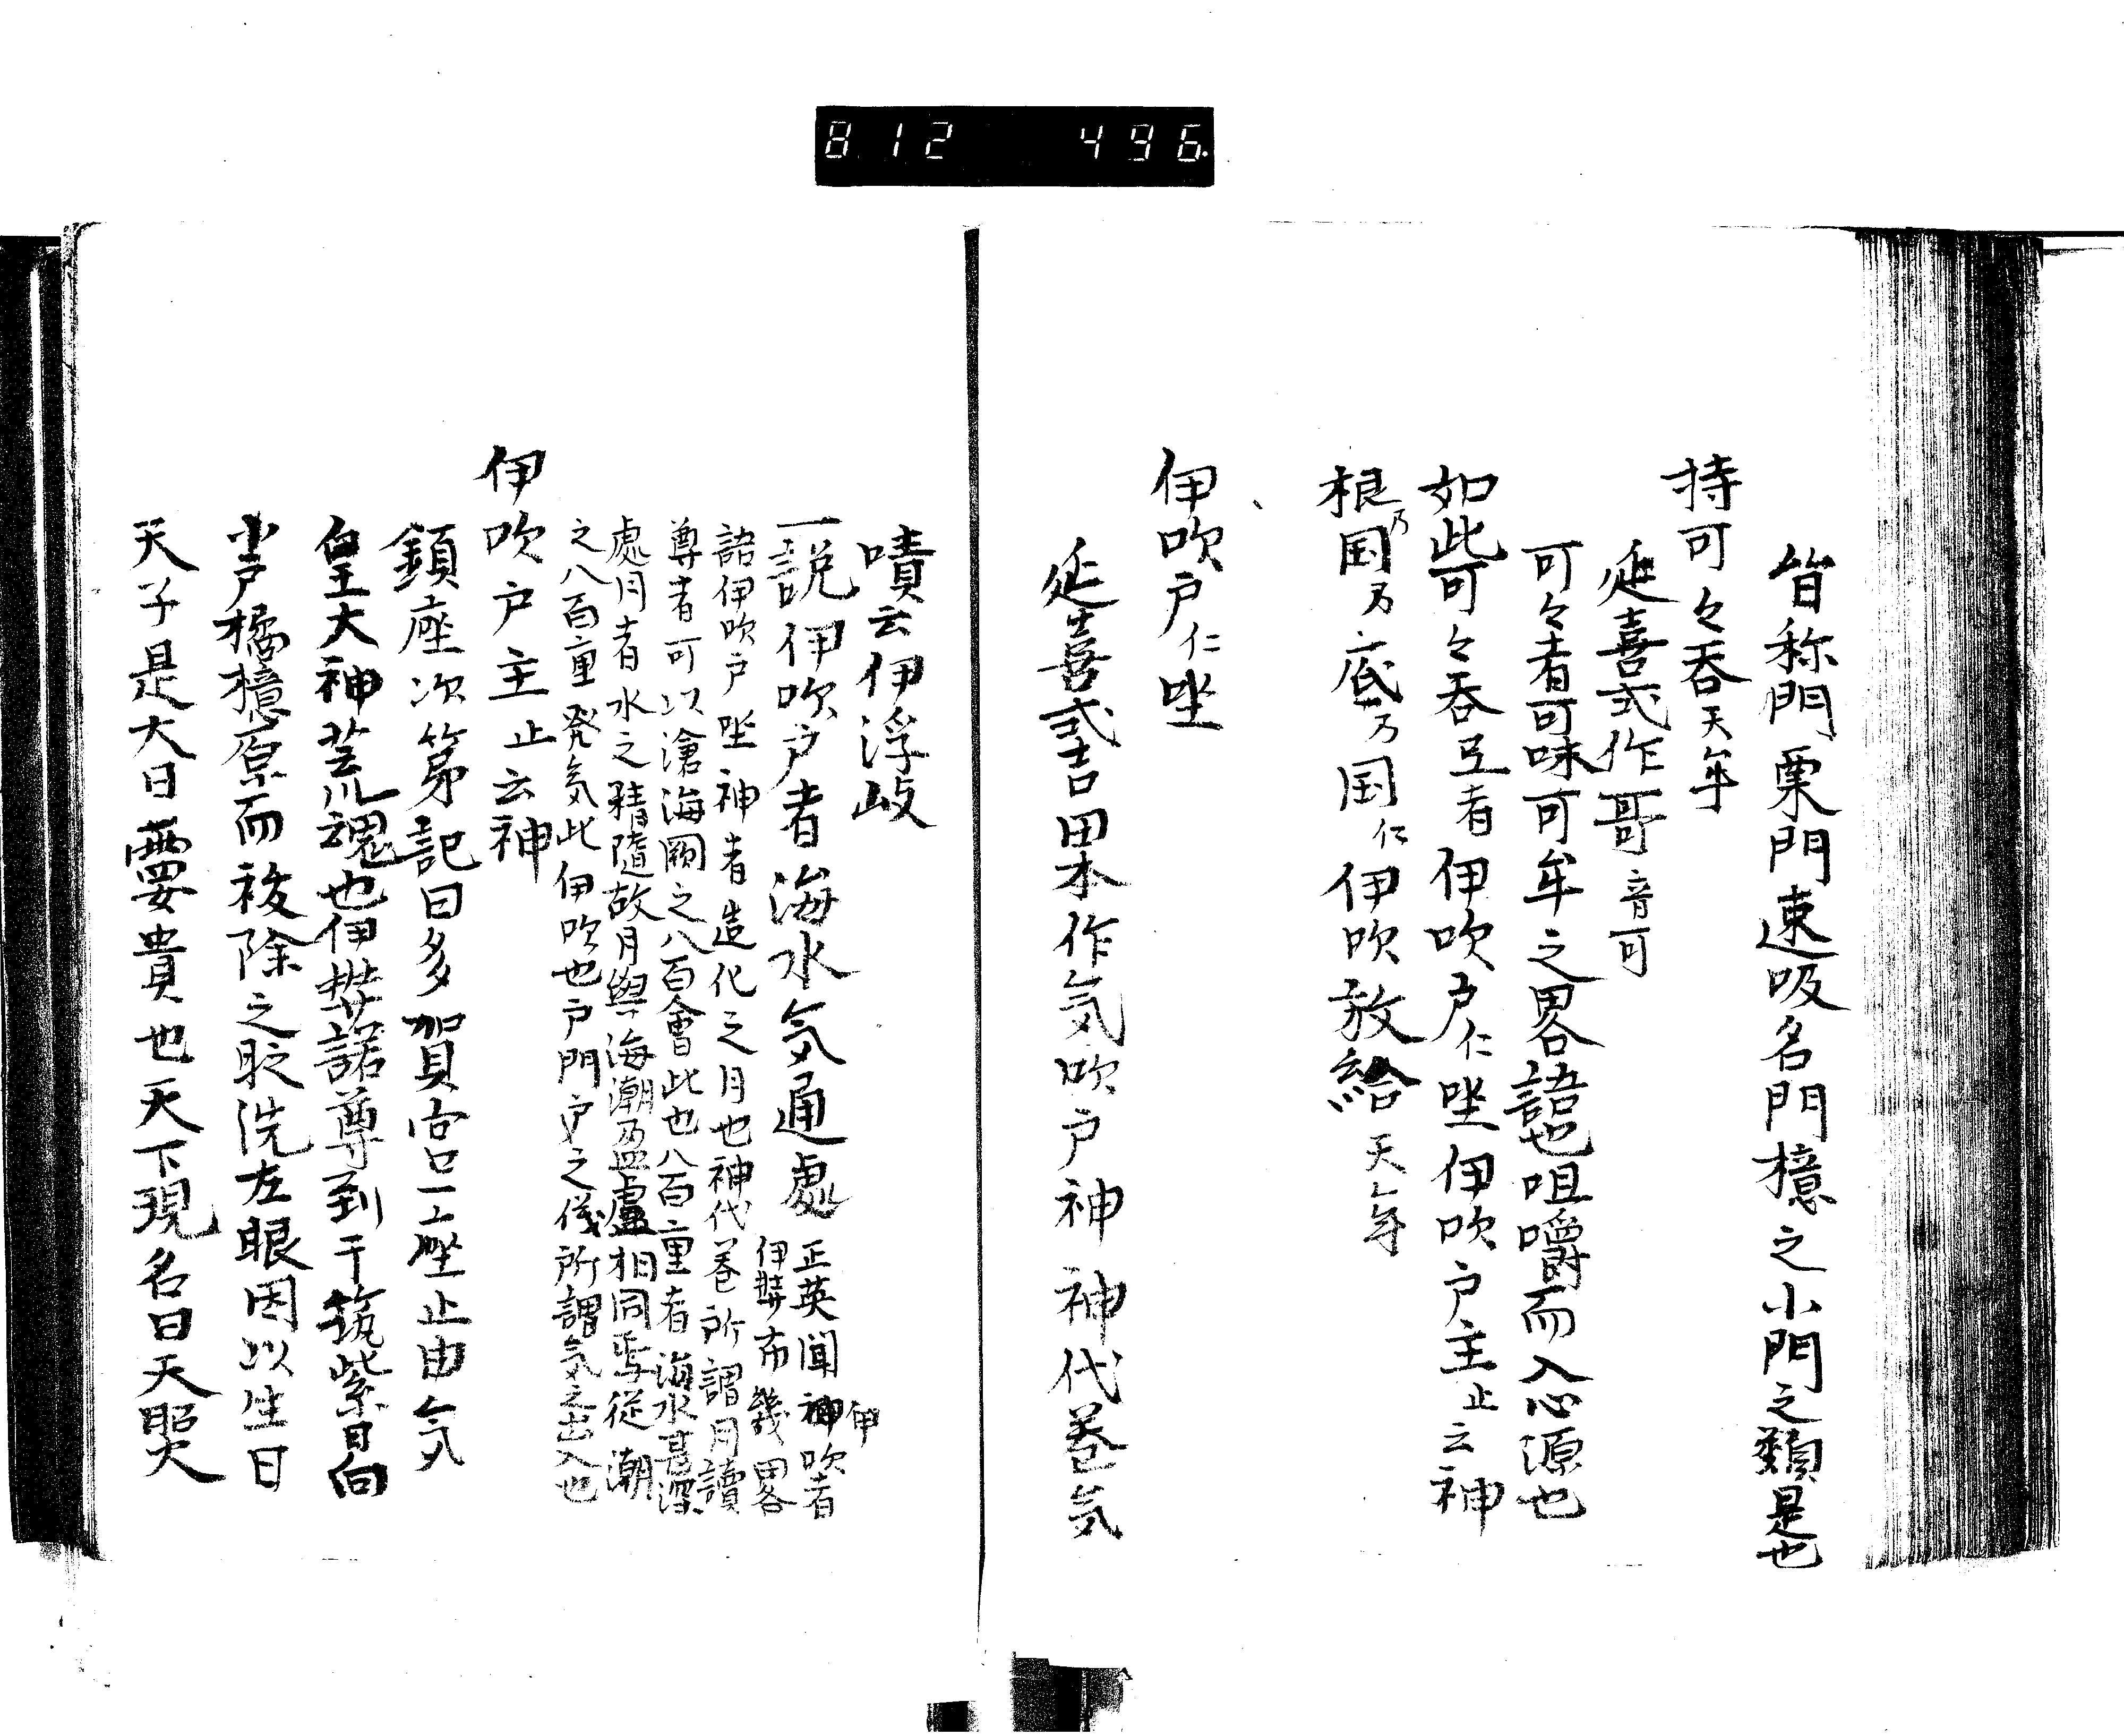 812 496.
皆称門粟門速吸名門檍之小門之類是也
持可々呑天牟
延喜式作哥音可
可々者可味可牟之畧語也咀嚼而入心源也
如此可々呑氐者伊吹戸仁坐伊吹戸主止云神
根国乃底乃国仁伊吹放給天牟
伊吹戸仁坐
延喜式卜本作気吹戸神神代巻気
噴云伊浮岐
一説伊吹戸者海水気通處
正英聞神伊吹者
伊弉布幾畧
語伊吹戸坐神者造化之月也神代巻所謂月讀
尊者可以滄海闕之八百會此也八百重者海水甚深
處月者水之精隨故月與海潮乃盈虚相同焉従潮
之八百重発気此伊吹也戸門戸之儀所謂気之出入也
伊吹戸主止云神
鎮座次第記曰多賀宮一座止由気
皇大神荒魂也伊弉諾尊到于筑紫日向
小戸橘檍原而祓除之時洗左眼因以生日
天子是大日孁貴也天下現名曰天照